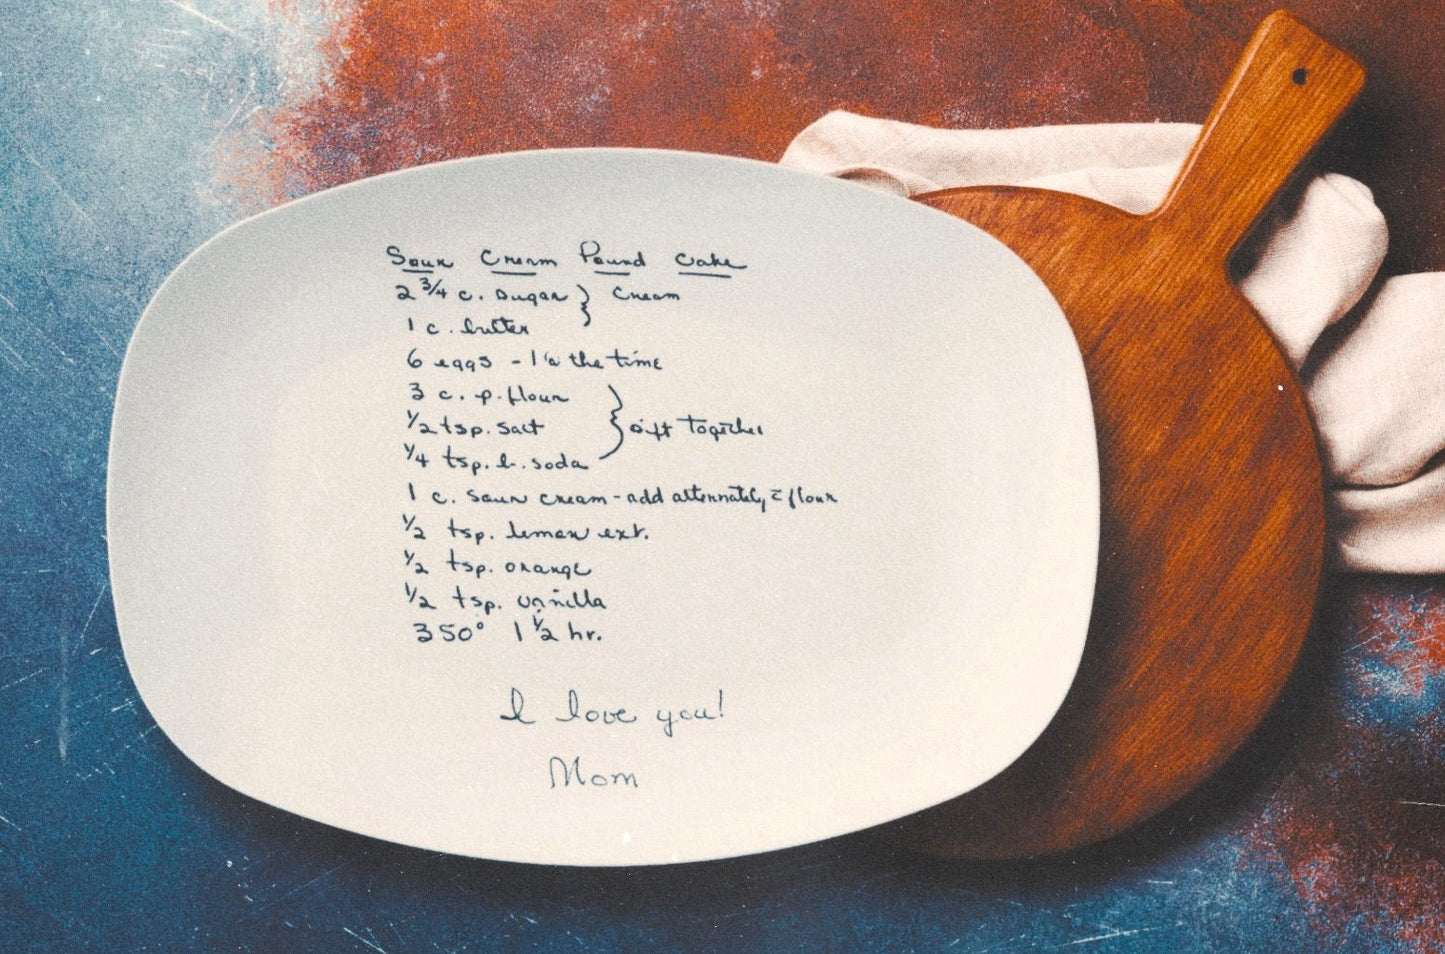 Sour Cream Pound Cake
2 3/4 c. sugar } Cream
1 c. butter
6 eggs - 1 @ the time
3 c. p. flour
1/2 tsp. salt } sift together
1/4 tsp. b. soda
1 c. sour cream - add alternately c̄ flour
1/2 tsp. lemon ext.
1/2 tsp. orange
1/2 tsp. vanilla
350° 1 1/2 hr.
I love you!
Mom